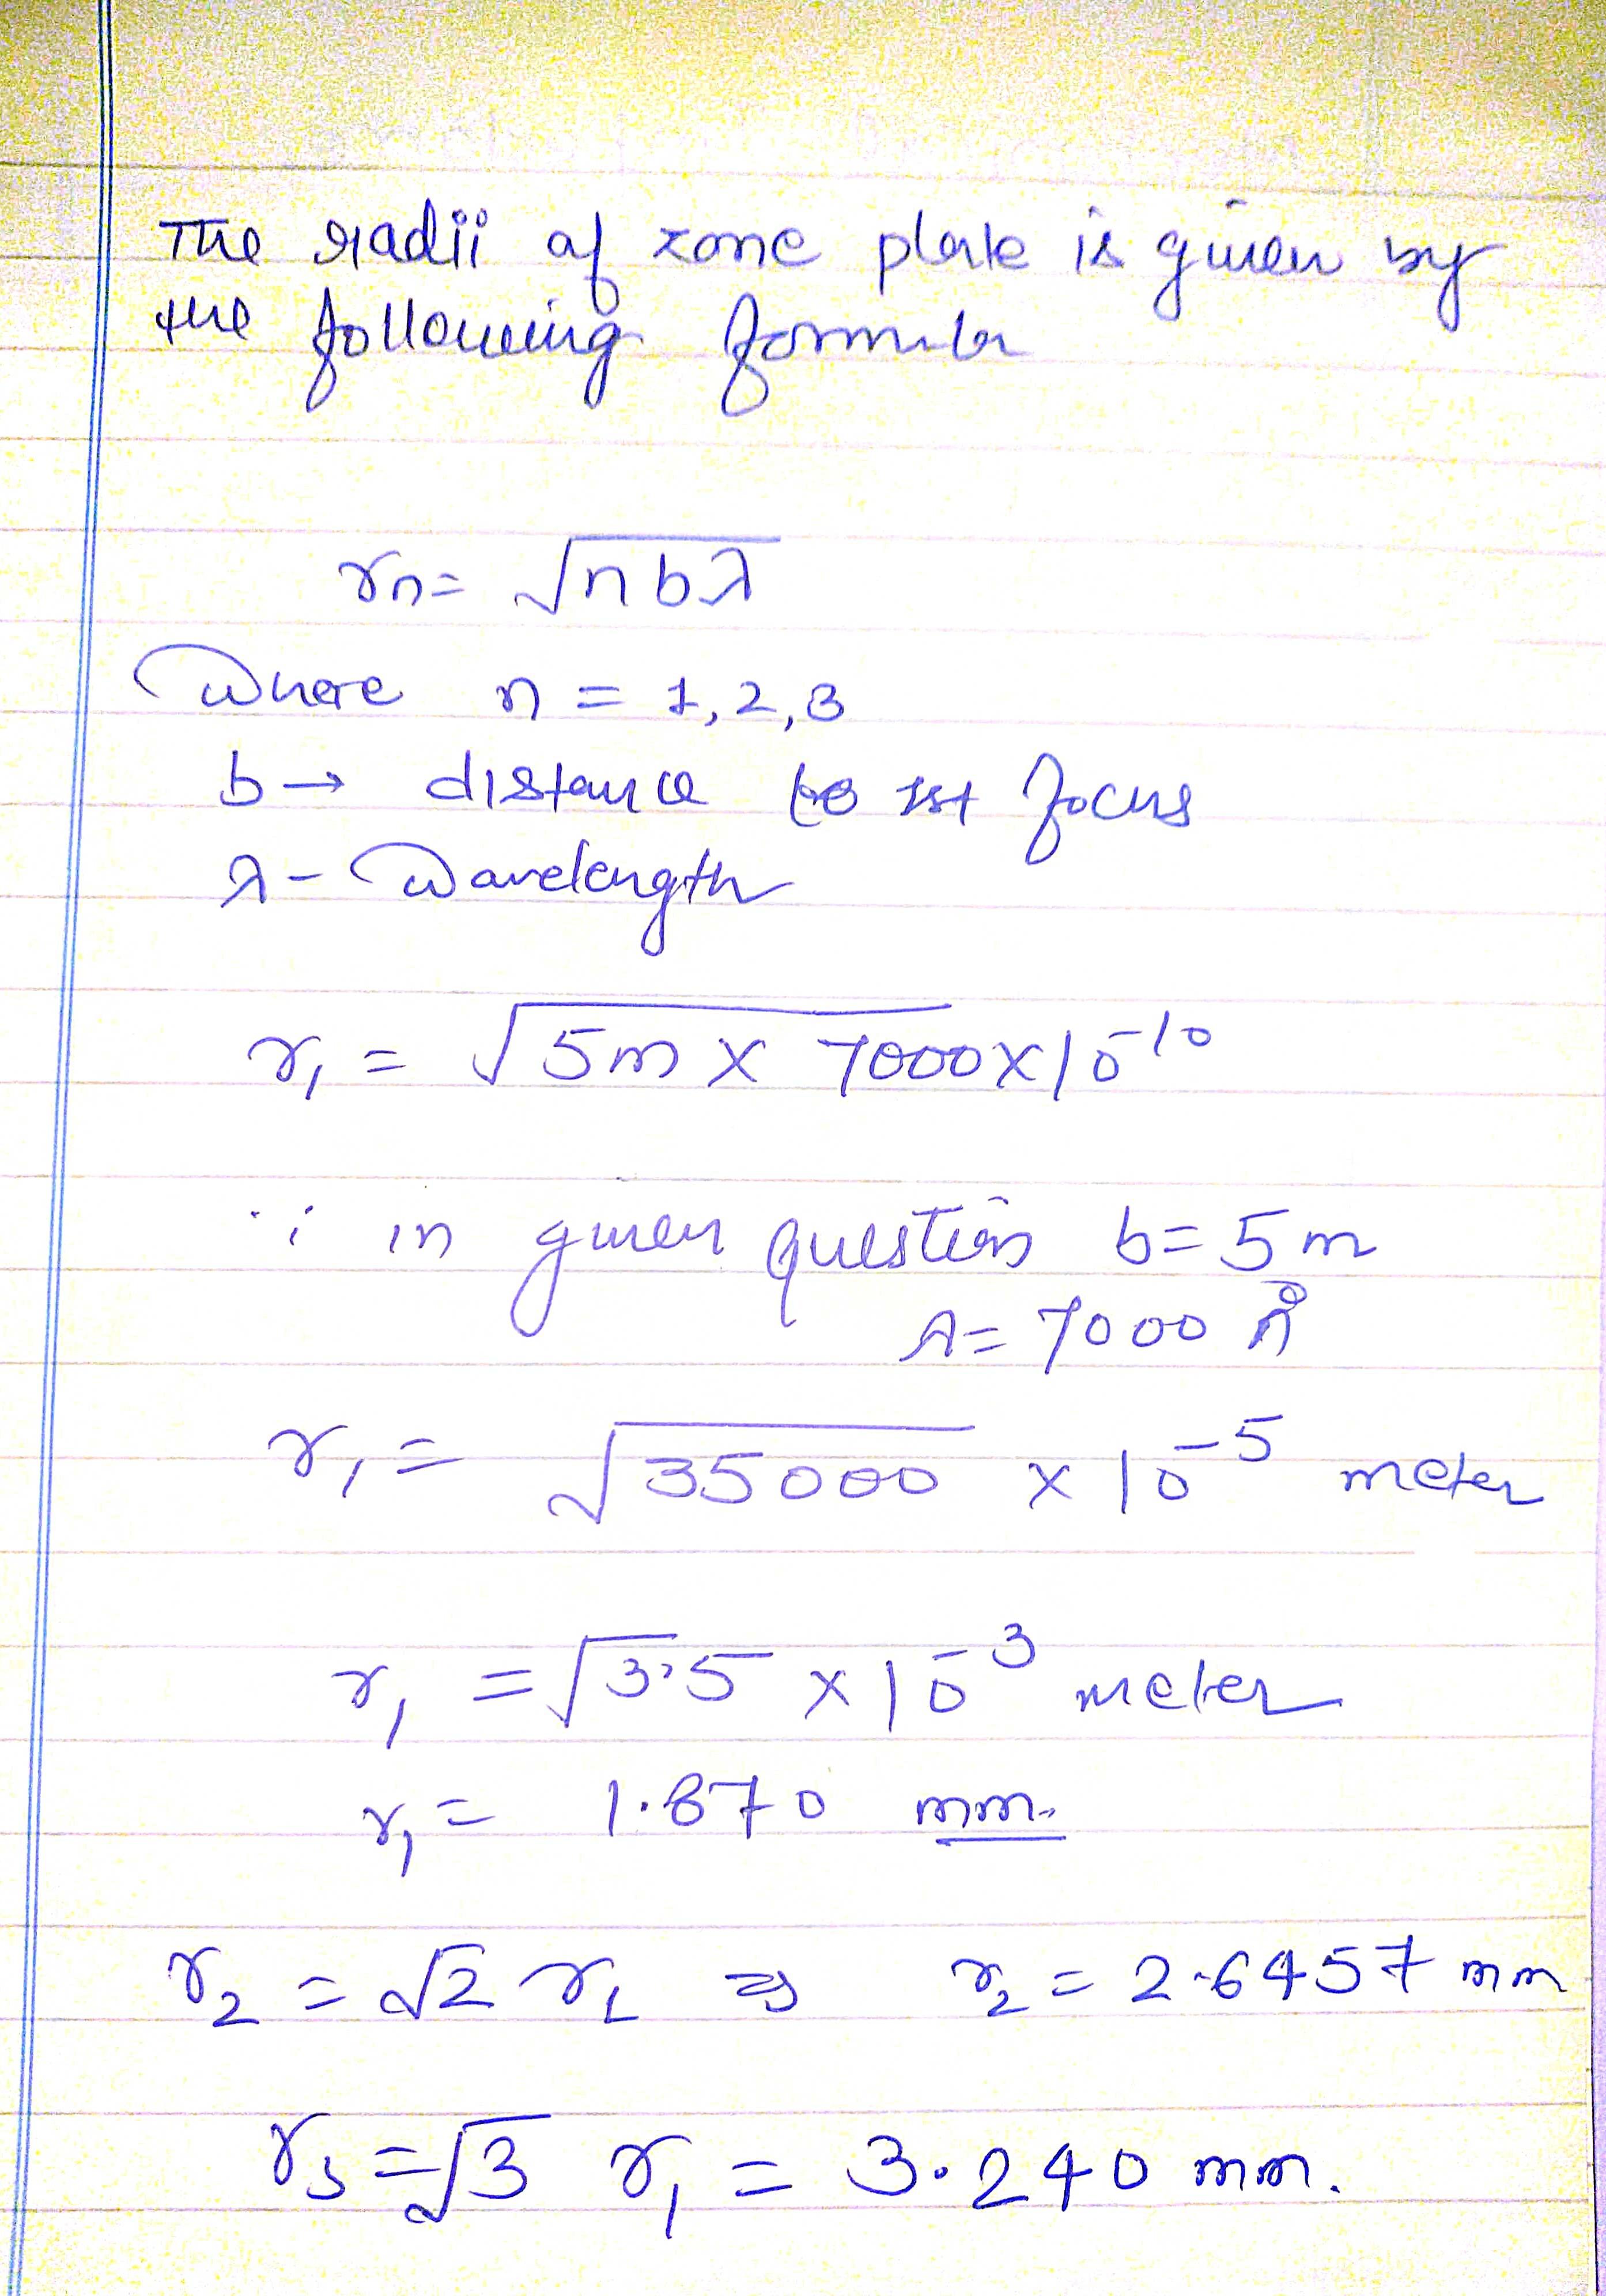 The radii of zone plate is given by
the following formula
rn= √nbλ
Where n = 1,2,3
b→ distance to 1st focus
λ- Wavelength
r₁ = √5m x 7000x10⁻¹⁰
∵ in given question b= 5m
λ= 7000 Å
r₁= √35000 x 10⁻⁵ meter
r₁ = √3.5 x 10⁻³ meter
r₁= 1.870 mm.
r₂ = √2 r₁ ⇒ r₂ = 2.6457 mm
r₃ = √3 r₁ = 3.240 mm.